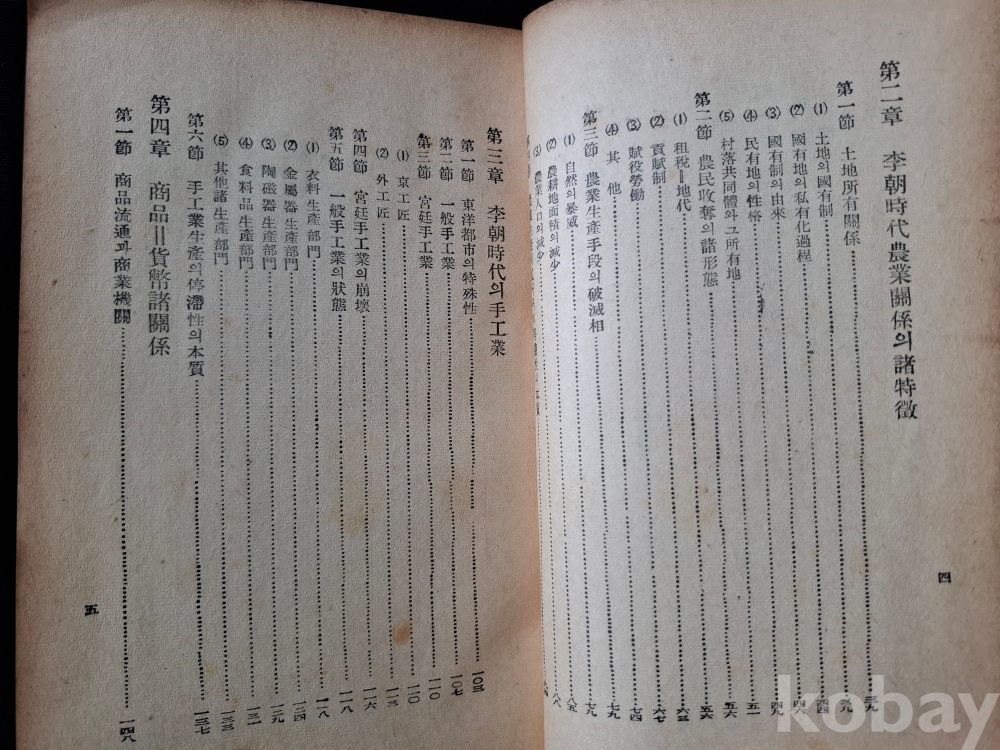 第二章 李朝時代農業關係의諸特徵
第一節 土地所有關係……三九
⑴ 土地의國有制……三九
⑵ 國有地의私有化過程……四四
⑶ 國有制의由來……四九
⑷ 民有地의性格……五一
⑸ 村落共同體와그所有地……五六
第二節 農民收奪의諸形態……五六
⑴ 租稅=地代……六三
⑵ 貢賦制……六七
⑶ 賦役勞働……七四
⑷ 其他……七九
第三節 農業生產手段의破滅相……七九
⑴ 自然의暴威……八五
⑵ 農耕地面積의減少……八八
⑶ 農業人口의減少
四
第三章 李朝時代의手工業
第一節 東洋都市의特殊性……一〇三
第二節 一般手工業……一〇七
第三節 宮廷手工業……一一〇
⑴ 京工匠……一一〇
⑵ 外工匠……一一三
第四節 宮廷手工業의崩壞……一一六
第五節 一般手工業의狀態……一一八
⑴ 衣料生產部門……一一八
⑵ 金屬器生產部門……一二四
⑶ 陶磁器生產部門……一二九
⑷ 食料品生產部門……一三一
⑸ 其他諸生產部門……一三三
第六節 手工業生產의停滯性의本質……一三七
第四章 商品=貨幣諸關係
第一節 商品流通과商業機關……一四八
五
kobay